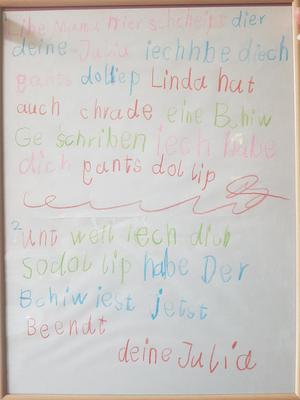 lihe Mama hier schcheipt dier
deine Julia iechhbe diech
gants doll iep Linda hat
auch chrade eine Bhiw
Ge schriben iech habe
dich gants dol lip
2 unt weil iech dich
so dol lip habe Der
Bchiw iest jetst
Beendt
deine Julia